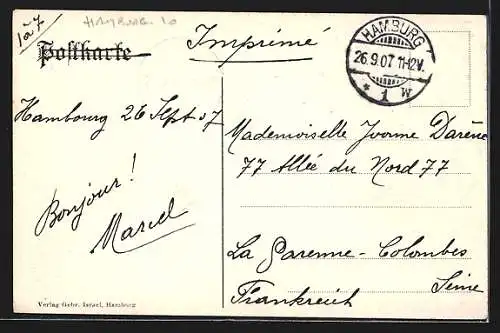 1 à 7
HAMBURG. 10
Postkarte
Imprimé
HAMBURG
26.9.07 11-12V.
* 1 w
Hambourg 26 Sept 07
Bonjour!
Marcel
Mademoiselle Yvonne Darène
77 Allée du Nord 77
La Garenne-Colombes
Seine
Frankreich
Verlag Gebr. Israel, Hamburg